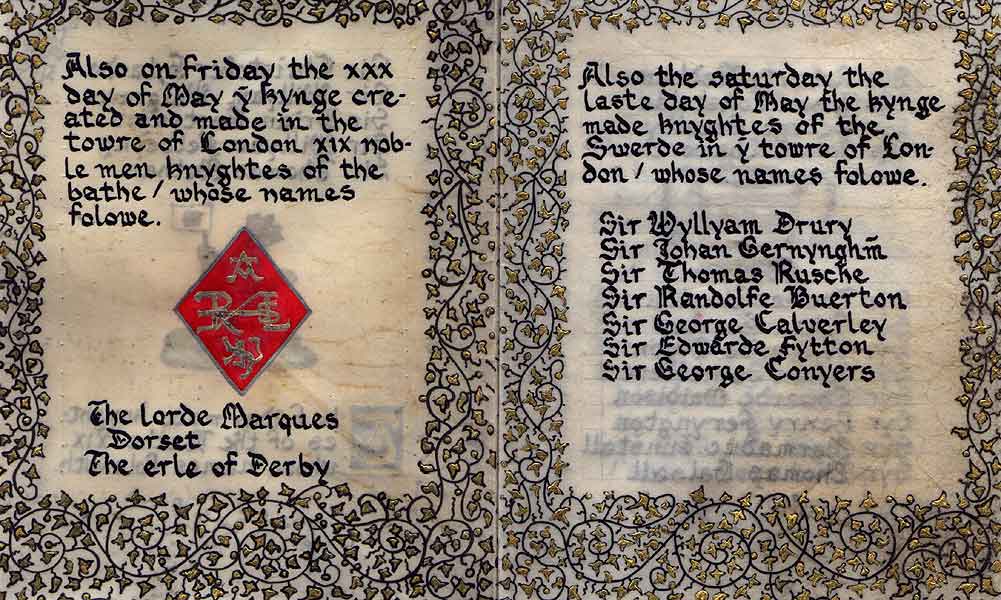 Also on friday the xxx
day of May ỹ kynge cre-
ated and made in the
towre of London xix nob-
le men knyghtes of the
bathe / whose names
folowe.
The lorde Marques
Dorset
The erle of Derby
Also the saturday the
laste day of May the kynge
made knyghtes of the
Swerde in̄ ỹ towre of Lon-
don / whose names folowe.
Sir Wyllyam Drury
Sir Johan Gernynghm̄
Sir Thomas Rusche
Sir Randolfe Buerton
Sir George Calverley
Sir Edwarde fytton
Sir George Conyers